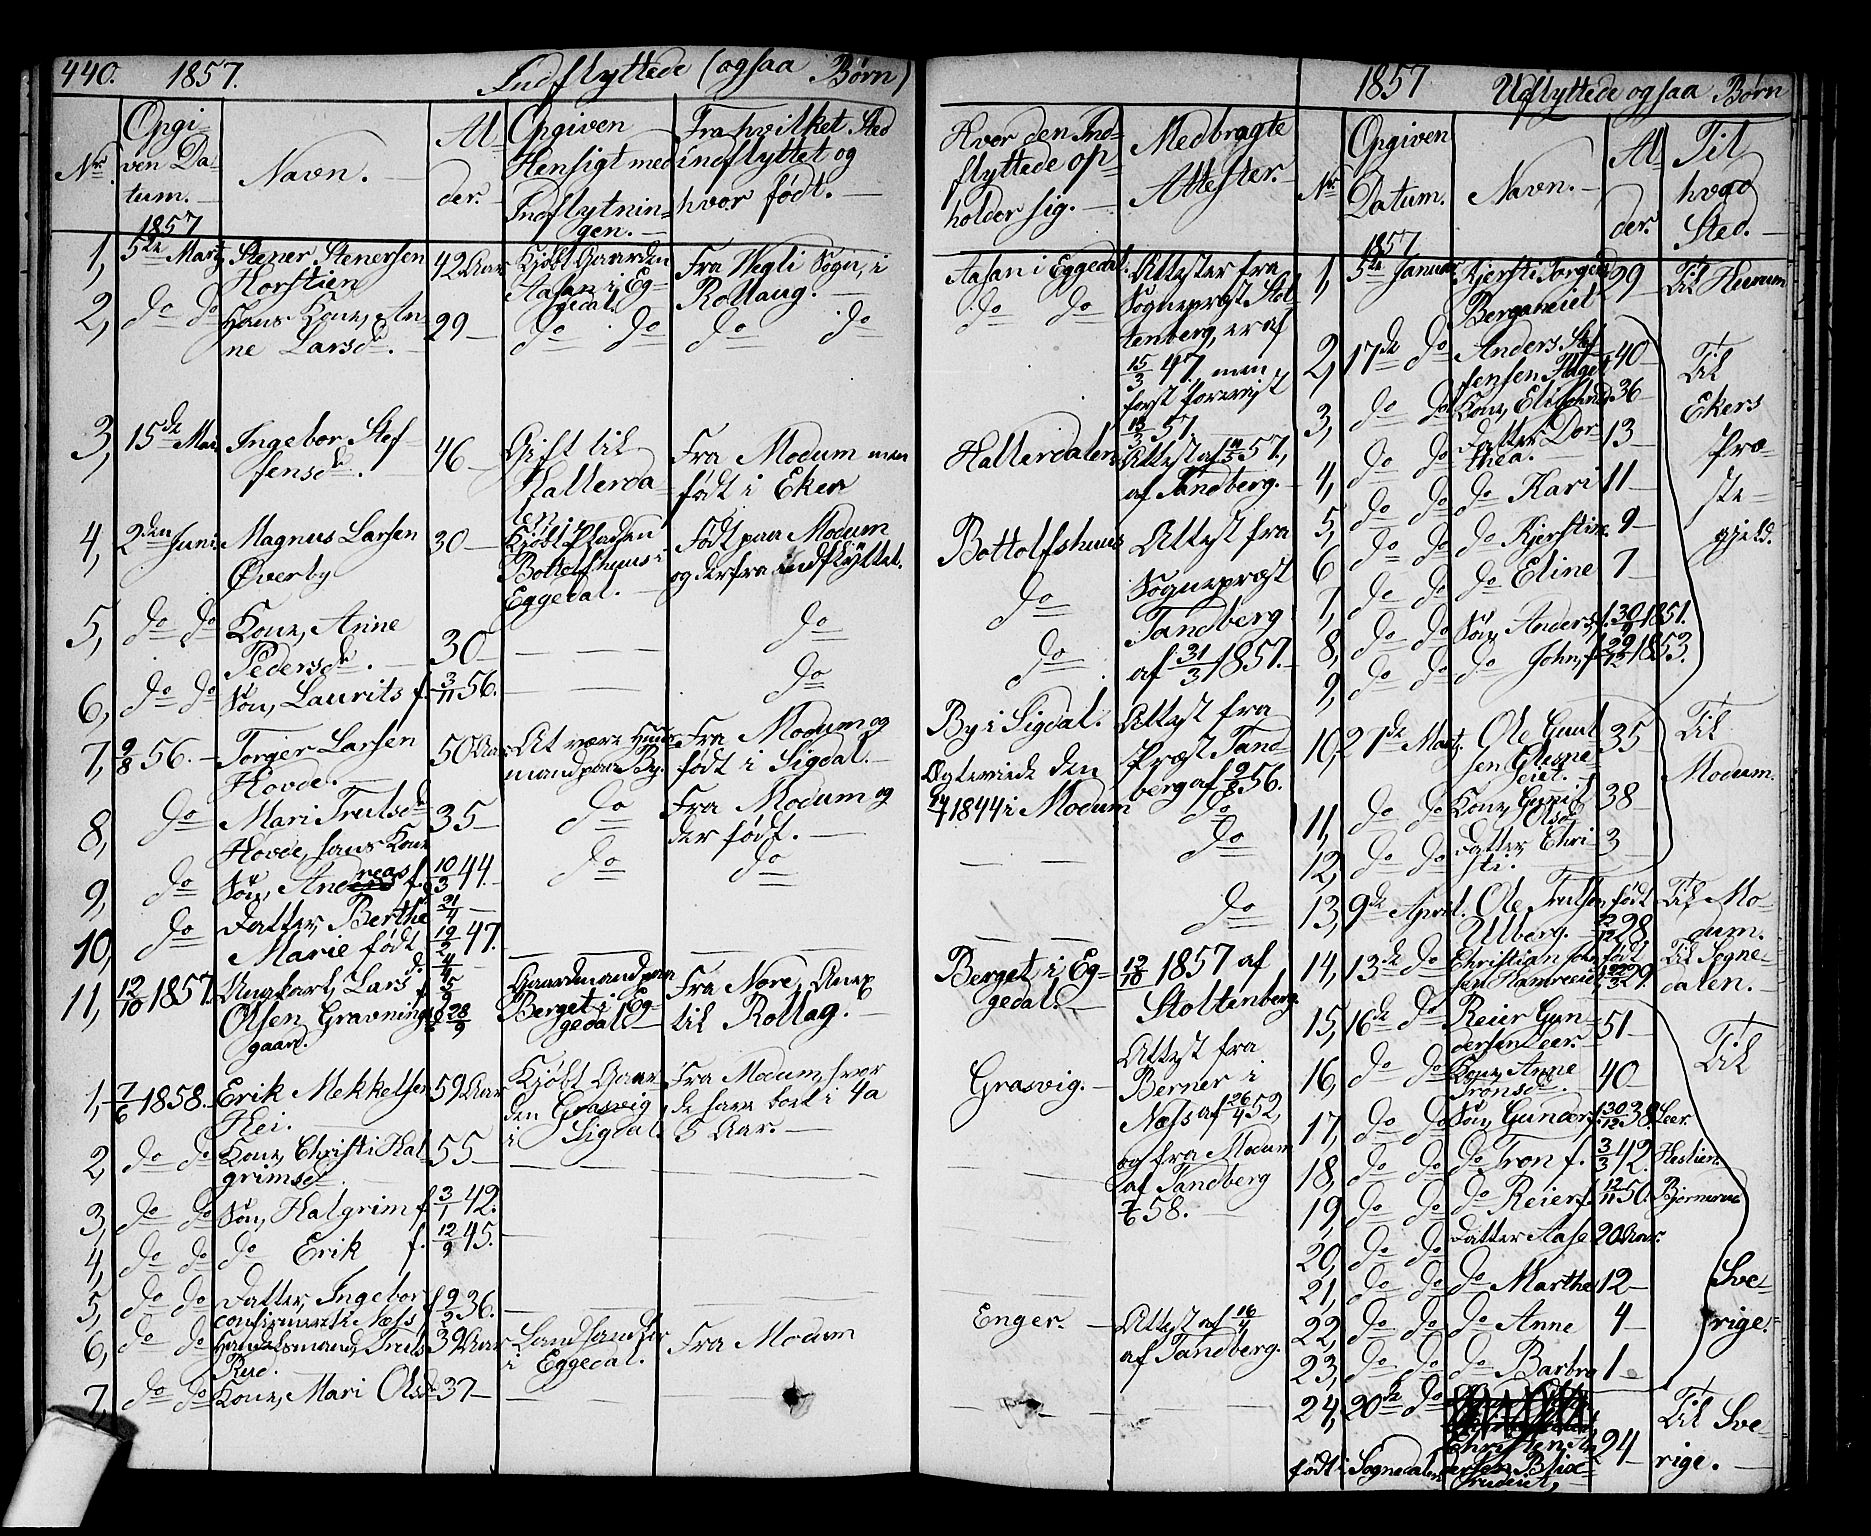 440. 1857. Indflyttede (ogsaa Børn)
Nr. Opgiven Datum. Navn. Alder. Opgiven Hensigt med Indflytningen. Fra hvilket Sted indflyttet og hvor født. Hvor den Indflyttede opholder sig. Medbragte Attester.
1857
1, 5te Marts Stener Stenersen Horstien 42 Aar Kjøbt Gaarden Aasan i Eggedal. Fra Vegli Sogn, i Rollaug. Aasan i Eggedal. Attester fra Sognepræst Stoltenberg, er af 15/3 47, men først forevist 13/3 57.
2, do do Hans Kone, Anne Larsd. 29 do do do do do do
3, 15de Mar. Ingebor Steffensd. 46 Gift til Hallerdalen Fra Modum men født i Eker Hallerdalen Attest af 57, af Tandberg.
4, 2den Juni Magnus Larsen Øverby 30 Kjøbt Pladsen Bottolfshuus i Eggedal. Født paa Modum og derfra indflyttet. Bottolfshuus Attest fra Sognepræst Tandberg af 31/3 1857.
5, do do Kone, Anne Pedersd. 30 do do
6, do do Søn, Laurits f. 3/11 56. do do
7, 9/8 56. Torger Larsen Hovde. 50 Aar At være Huusmand paa By. Fra Modum og født i Sigdal. By i Sigdal. Attest fra Præst Tandberg af 9/8 56.
8, do Mari Trulsd. Hovde, hans Kone 35 do Fra Modum og der født. Ægteviede den 1844 i Modum do
9, do Søn, Andreas f. 10/3 44. do do do
10, do Datter, Berthe Marie født 19/2 47. do
11, 12/10 1857. Ungkarl, Lars Olsen Gravningsgaard. 28 Gaardmand paa Berget i Eggedal Fra Nore, Anex til Rollag. Berget i Eggedal. 12/10 1857 af Stoltenberg
1, 7/6 1858. Erik Mekkelsen Hei. 59 Aar Kjøbt Gaarden Grasvig i Sigdal. Fra Modum, hvor de have boet i 4 a 5 Aar. Grasvig. Attest fra Berner i Næss af 26/4 52, og fra Modum af Tandberg 7/6 58.
2 do do Kone, Christi Halgrimsd. 55
3, do do Søn, Halgrim f. 3/1 42.
4, do do do Erik f. 12/9 45.
5, do do Datter, Ingebor f. 9/2 36. confirmert i Næss
6, do do Handelsmand, Truls Rud. 39 Aar Landhandler i Eggedal. Fra Modum Enger. Attest af 16/4 af Tandberg.
7, do do Kone, Mari Olsd. 37
1857 Udflyttede ogsaa Børn
Nr. Opgiven Datum. Navn. Alder. Til hvad Sted.
1857
1, 5te Januar Kjersti Torgersd. Berganeiet 29 Til Hurum
2, 17de do Anders Steffensen 40 Til Ekers Præstegjeld.
3, do do Kone, 36
4, do do Datter Dorthea. 13
5, do do do Kari 11
6 do do do Kjerstine 9
7, do do do Eline 7
8, do do Søn, Anders, f. 30/9 1851.
9, do do do John, f. 29/12 1853.
10, 21de Marts. Ole Gulsen Glesneeiet. 35 Til Modum.
11, do do Kone, Gunil Olsd. 38
12, do do Datter, Christi. 3
13, 9de April. Ole Trulsen Ulberg. født 28 Til Modum.
14, 13de do Christian Johnsen Hamreeiet født 29. Til Sognedalen.
15, 16de do Reier Gundersen Leer. 51 Til
16, do do Kone, Anne Tronsd. 40
17, do do Søn, Gunder f. 30/12 38. Leer.
18, do do do Tron f. 3/3 42.
19, do do do Reier f. 12/11 50.
20, do do Datter Aase 20 Aar.
21, do do do Marthe 12 Sve-
22, do do do Anne 4 rige.
23, do do do Barbra 1
24, 20de do Christen 24 Til Sverige.
født i Sognedalen